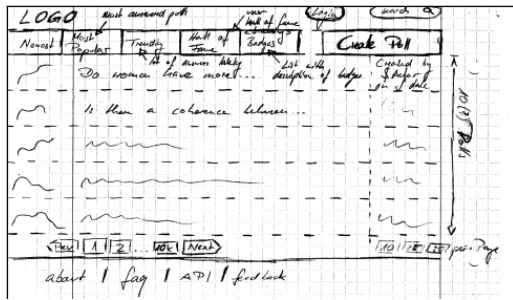 LOGO most answered polls user Hall of fame Login search
Newest Most Popular Trending Hall of Fame Badges Create Poll
# of answers lately List with description of badges
Do women have more... Created by $user on $date
Is there a coherence between...
10(?) Polls
Prev 1 2 ... Next 10 per Page
about | faq | API | feedback